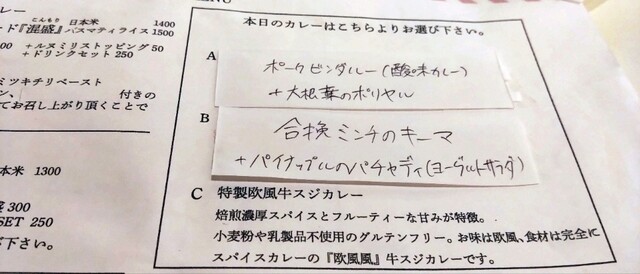 MENU
カレー
こんもり
日本米 1400
ード『混盛』バスマティライス 1500
+ルヌミリストッピング 50
+ドリンクセット 250
ミツキチリペースト
ン、 付きの
てお召し上がり頂くことで
本米 1300
盛300
SET 250
下さい。
本日のカレーはこちらよりお選び下さい。
A
ポークビンダルー(酸味カレー)
+大根葉のポリヤル
B
合挽ミンチのキーマ
+パイナップルのパチャディ(ヨーグルトサラダ)
C 特製欧風牛スジカレー
焙煎濃厚スパイスとフルーティーな甘みが特徴。
小麦粉や乳製品不使用のグルテンフリー。お味は欧風、食材は完全に
スパイスカレーの『欧風風』牛スジカレーです。